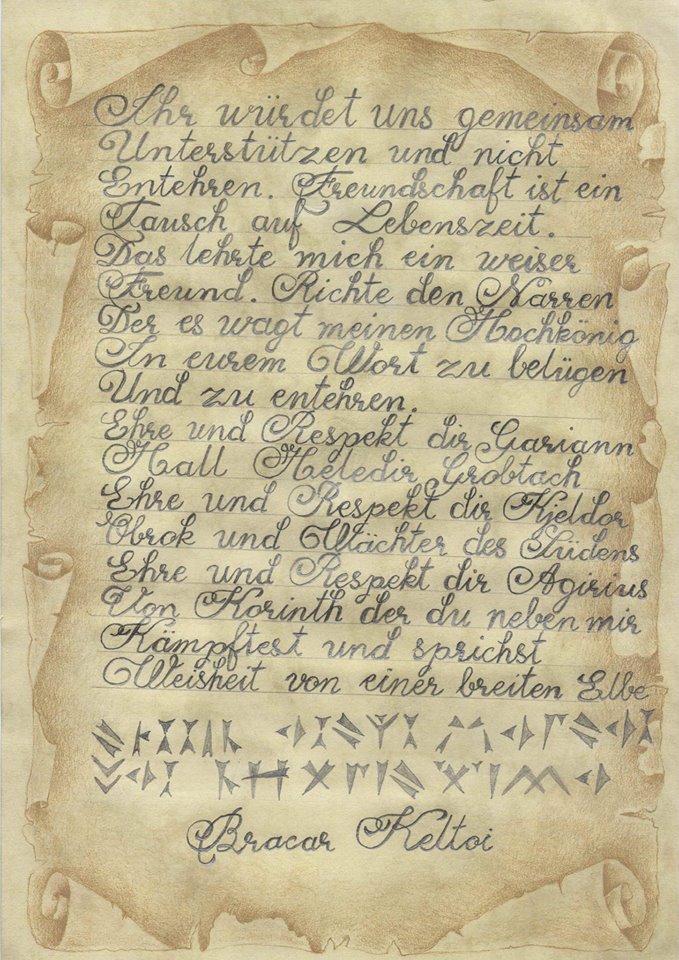 Ihr würdet uns gemeinsam
Unterstützen und nicht
Entehren. Freundschaft ist ein
Tausch auf Lebenszeit.
Das lehrte mich ein weiser
Freund. Richte den Narren
Der es wagt meinen Hochkönig
In eurem Wort zu belügen
Und zu entehren.
Ehre und Respekt dir Gariann
Hall Heledir Grobtach
Ehre und Respekt dir Kjeldor
Obrok und Wächter des Südens
Ehre und Respekt dir Agirius
Von Korinth der du neben mir
Kämpftest und sprichst
Weisheit von einer breiten Elbe
Bracar Keltoi